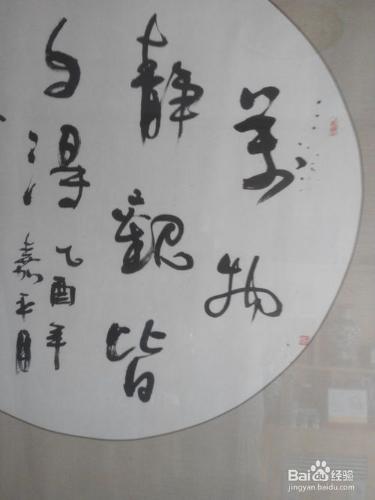 萬物
靜觀皆
自得
乙酉年
嘉平月
Baidu经验
jingyan.baidu.com